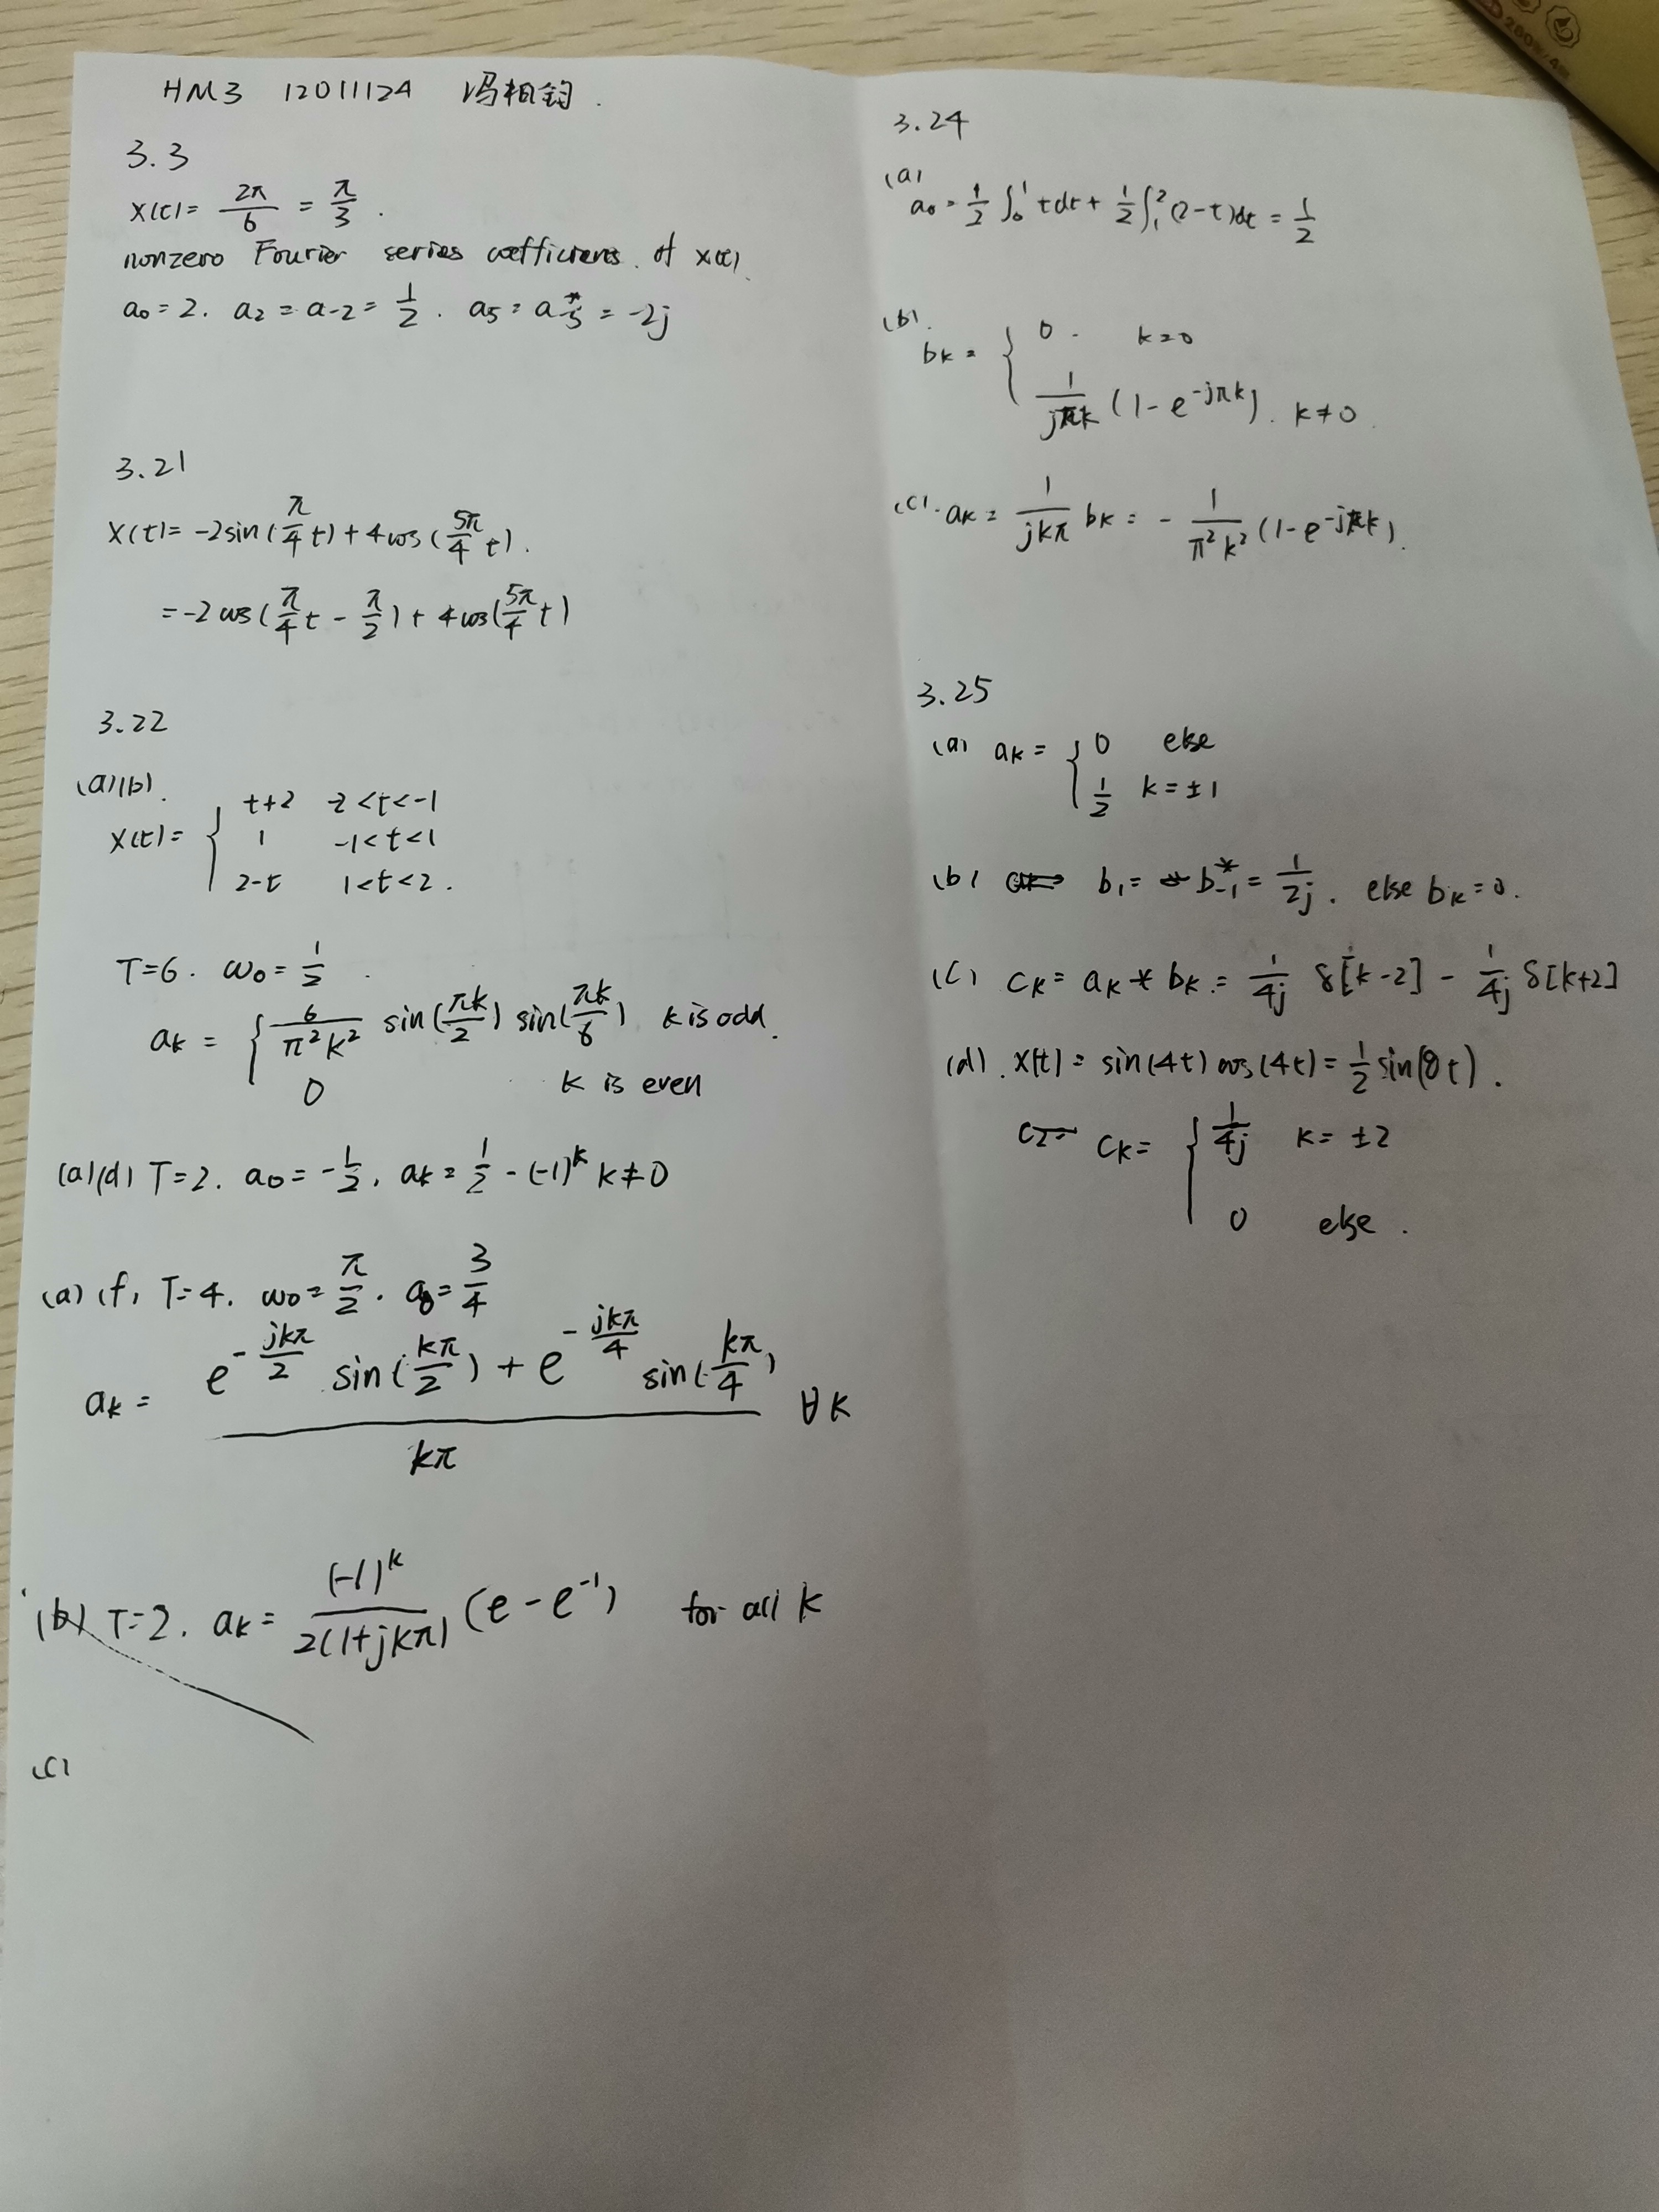 HM3 12011124 冯柏钧.
3.3
x(t) = 2π/6 = π/3.
nonzero Fourier series coefficients. of x(t).
a0 = 2. a2 = a-2 = 1/2. a5 = a-5* = -2j
3.21
x(t) = -2sin(π/4 t) + 4cos(5π/4 t).
= -2cos(π/4 t - π/2) + 4cos(5π/4 t)
3.22
(a)(b).
x(t) = { t+2 -2<t<-1
1 -1<t<1
2-t 1<t<2.
T=6. ω0 = 1/2.
ak = { 6/(π²k²) sin(πk/2) sin(πk/6) k is odd.
0 k is even
(a)(d) T=2. a0 = -1/2, ak = 1/2 - (-1)^k k≠0
(a)(f) T=4. ω0 = π/2. a0 = 3/4
ak = (e^(-jkπ/2) sin(kπ/2) + e^(-jkπ/4) sin(kπ/4)) / kπ ∀k
(b) T=2. ak = (-1)^k/(2(1+jkπ)) (e - e^-1) for all k
(c)
3.24
(a)
a0 = 1/2 ∫0^1 t dt + 1/2 ∫1^2 (2-t)dt = 1/2
(b).
bk = { 0. k=0
1/(jπk) (1 - e^(-jπk)). k≠0.
(c). ak = 1/(jkπ) bk = - 1/(π²k²) (1 - e^(-jπk)).
3.25
(a) ak = { 0 else
1/2 k=±1
(b) b1 = b-1* = 1/2j. else bk = 0.
(c) ck = ak * bk = 1/4j δ[k-2] - 1/4j δ[k+2]
(d). x(t) = sin(4t) cos(4t) = 1/2 sin(8t).
ck = { 1/4j k = ±2
0 else.